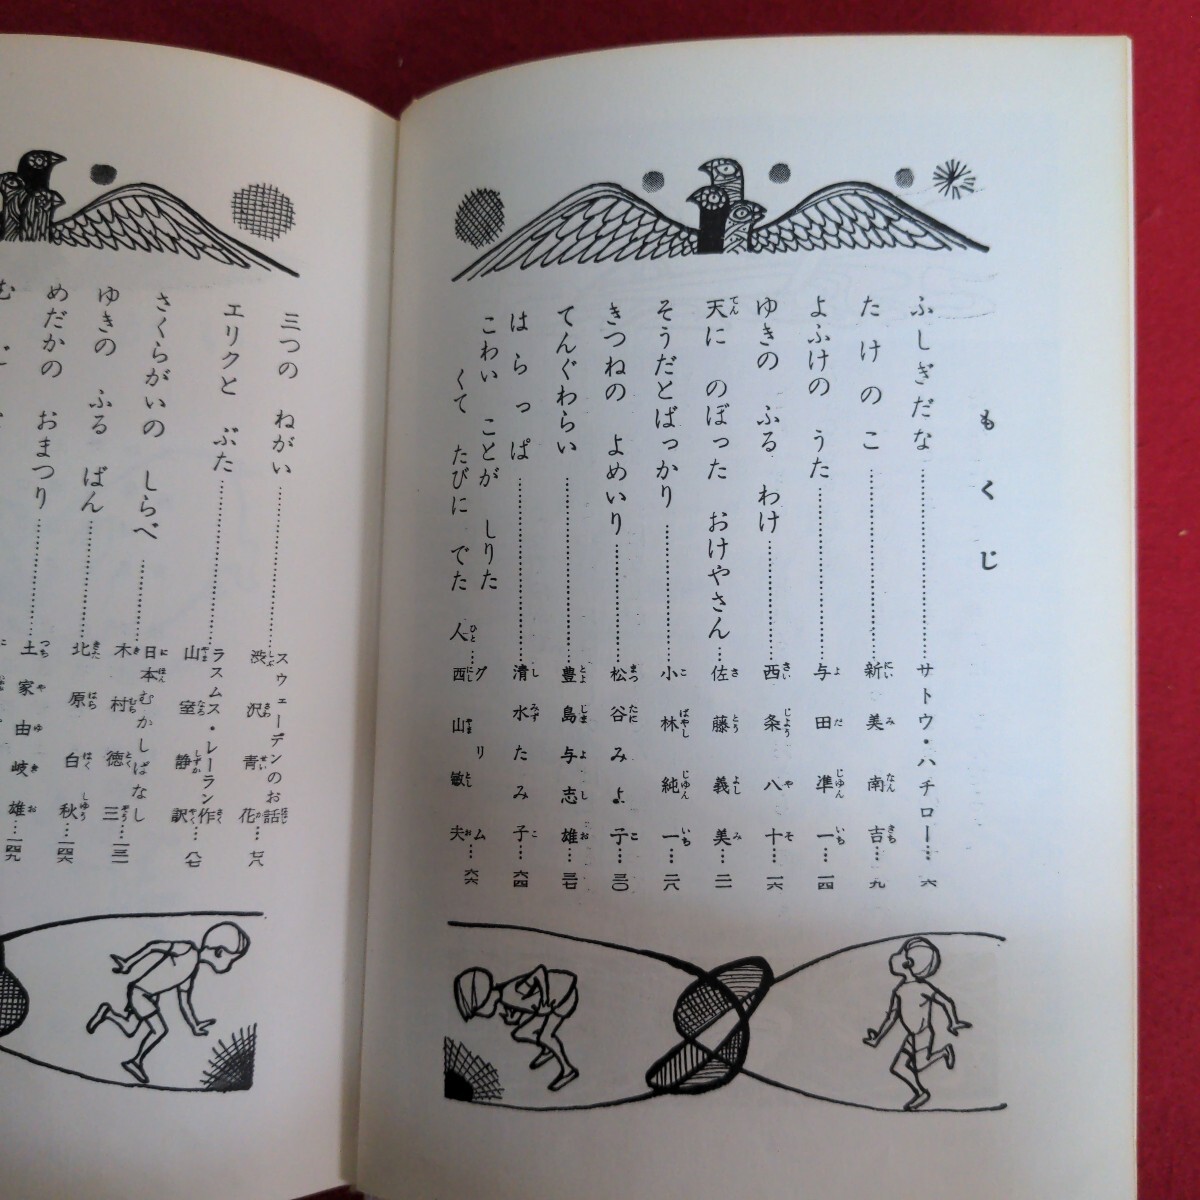 もくじ
ふしぎだな……………サトウ・ハチロー…六
たけのこ……………新美南吉…九
よふけの うた……………与田凖一…一四
ゆきの ふる わけ……………西条八十…一六
天に のぼった おけやさん…佐藤義美…二一
そうだとばっかり……………小林純一…二八
きつねの よめいり……………松谷みよ子…三〇
てんぐわらい……………豊島与志雄…三七
はらっぱ……………清水たみ子…六四
こわい ことが しりた
くて たびに でた 人…グリム
西山敏夫…六六
三つの ねがい……………スウェーデンのお話
渋沢青花…七八
エリクと ぶた……………ラスムス・レーラン作
山室静訳…八七
さくらがいの しらべ……………日本むかしばなし
木村徳三…一三一
ゆきの ふる ばん……………北原白秋…一四六
めだかの おまつり……………土家由岐雄…一四九